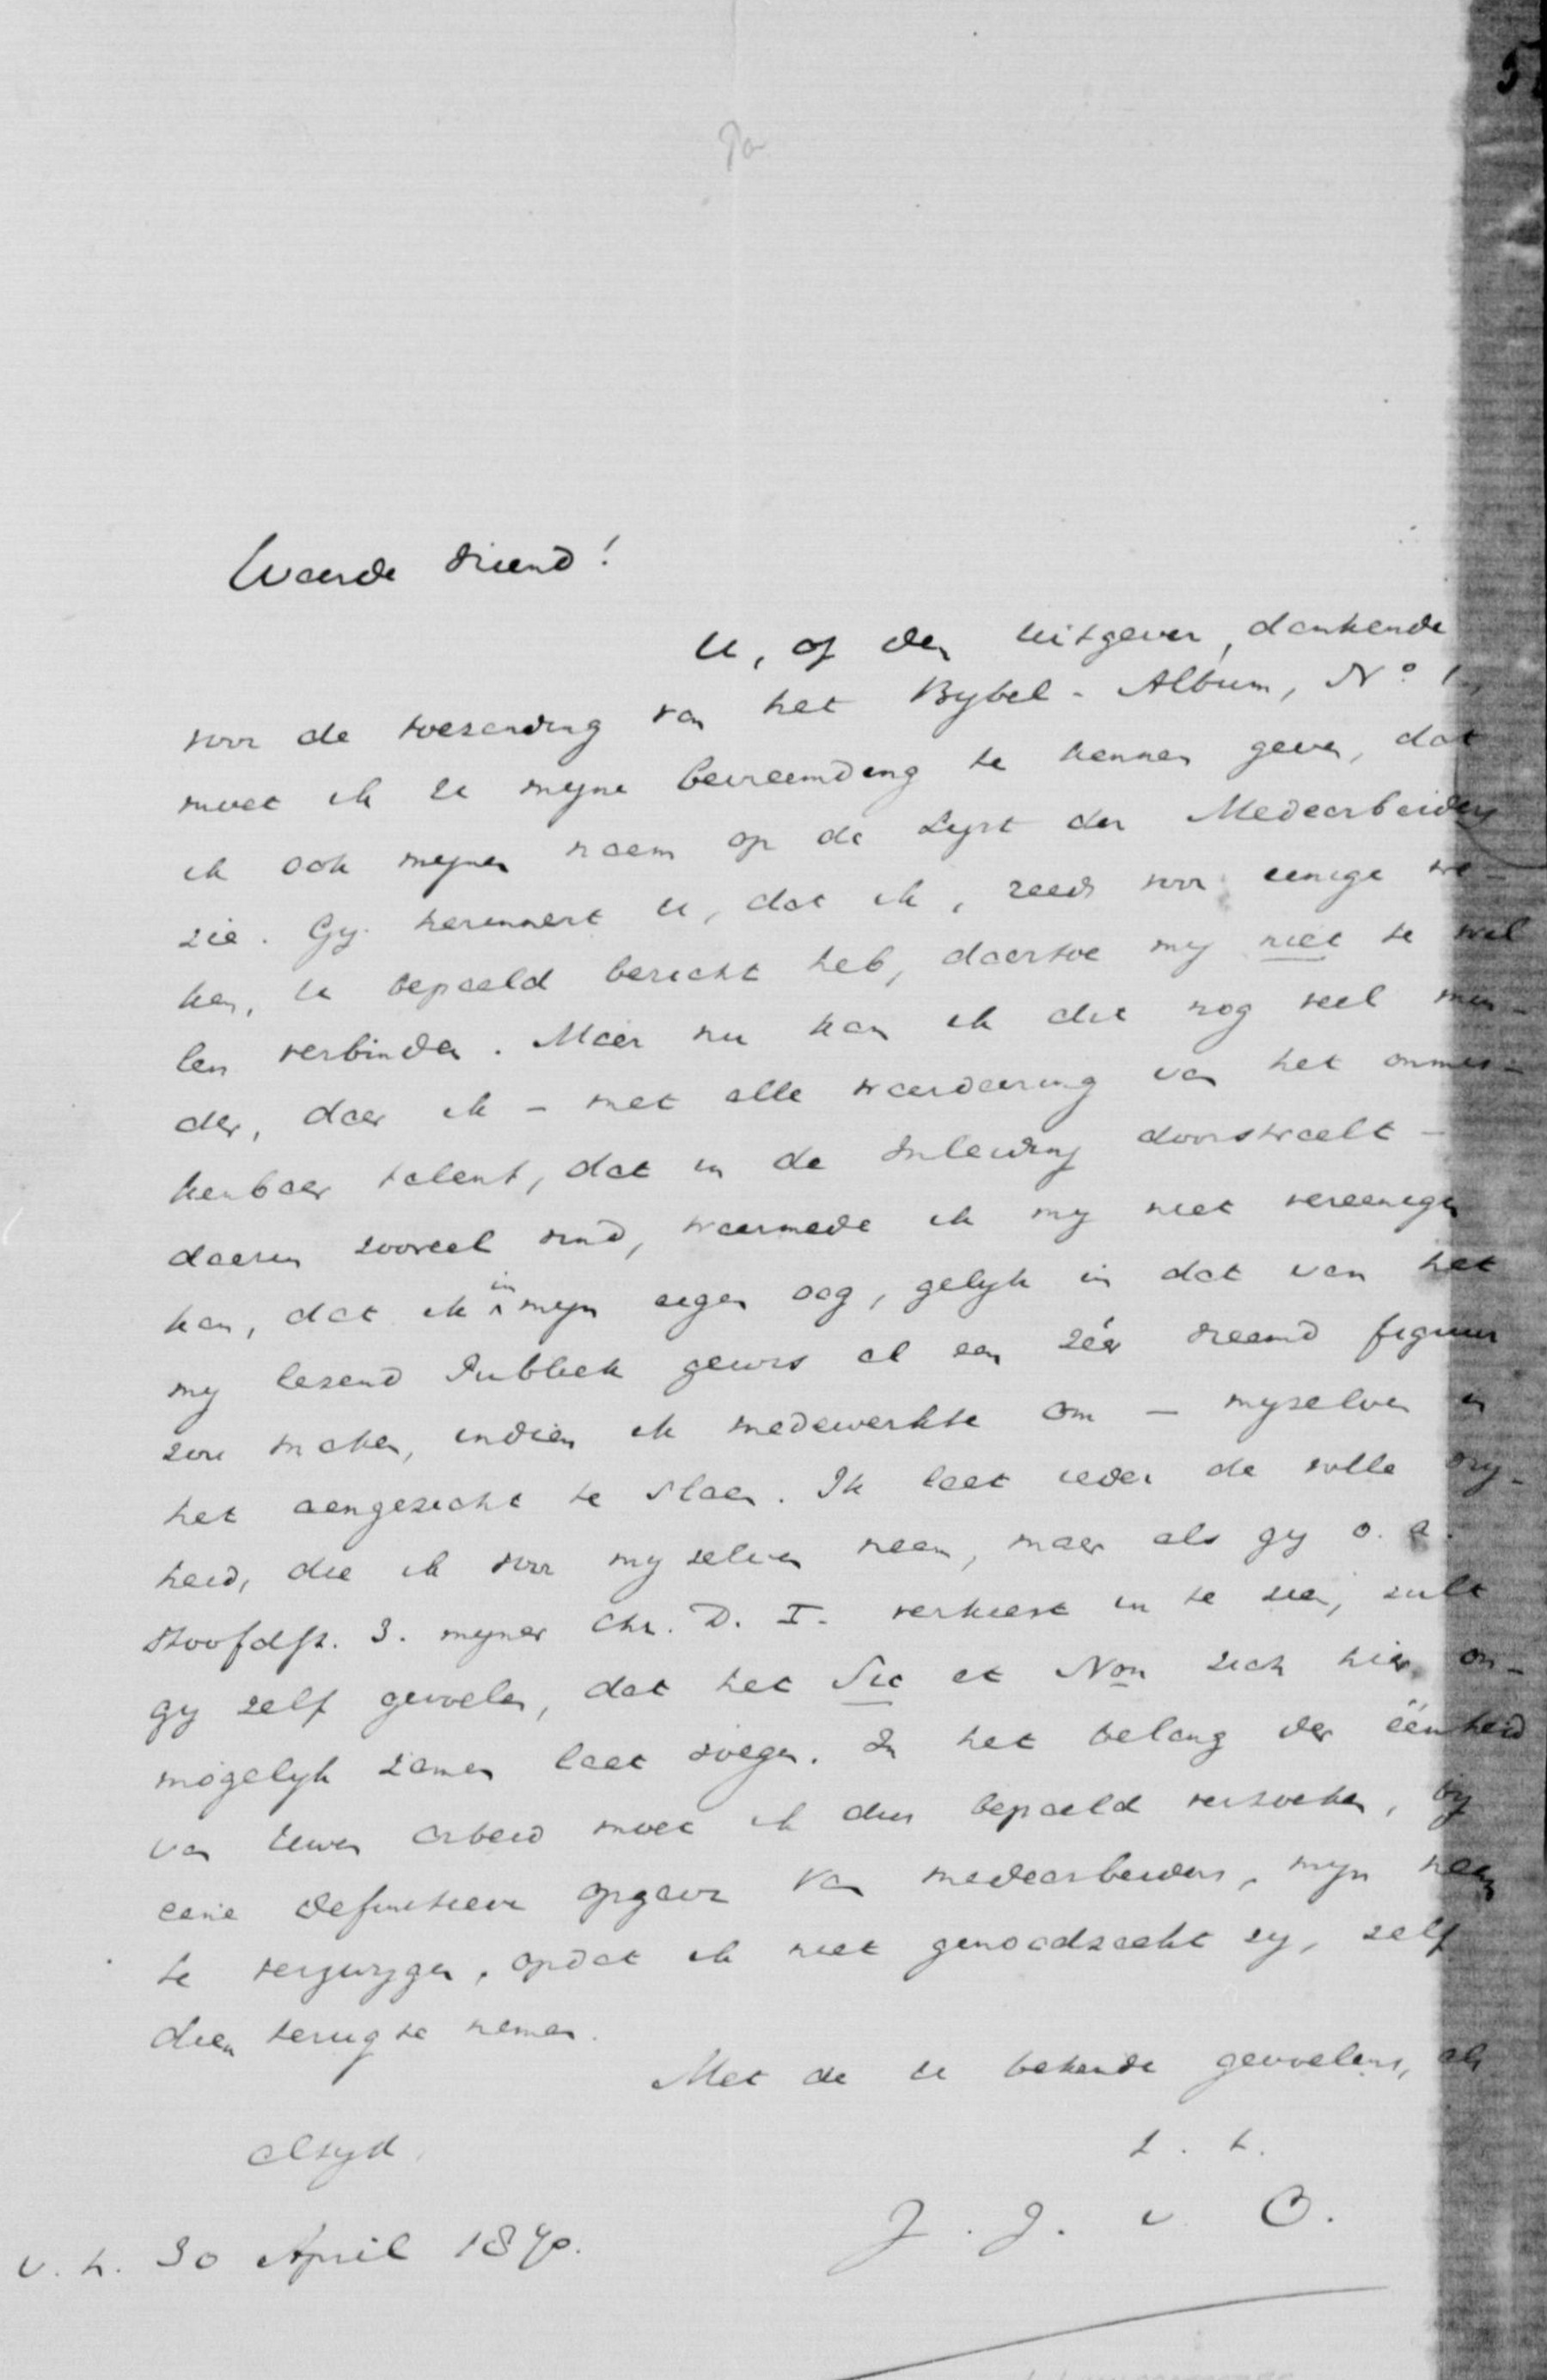 Waarde Vriend!
U, of den Uitgever, dankende
voor de toezending van het Bybel-Album, N° 1,
moet ik U mijne bevreemding te kennen geven, dat
ik ook mijnen naam op de Lyst der Medearbeiders
zie. Gy herinnert U, dat ik, reeds voor eenige we-
ken, U bepaald bericht heb, daartoe my niet te wil
len verbinden. Maar nu kan ik dit nog veel min-
der, daar ik - met alle waardeering van het onmis-
kenbaar talent, dat in de Inleiding doorstraalt -
daarin zooveel vind, waarmede ik my niet vereenigen
kan, dat ik in mijn eigen oog, gelyk in dat van het
my lezend Publiek gewis al een zéér vreemd figuur
zou maken, indien ik medewerkte om - myzelven in
het aangezicht te slaan. Ik laat ieder de volle vry-
heid, die ik voor my zelven neem, maar als gy o. a.
Hoofdst. 3. mijner Chr. D. I. verkiest in te zien, zult
gy zelf gevoelen, dat het Sic et Non zich hier on-
mogelyk zamen laat voegen. In het belang der éénheid
van Uwen arbeid moet ik dus bepaald verzoeken, by
eene definitieve opgave van medearbeiders, mijn naam
te verzwygen, opdat ik niet genoodzaakt zy, zelf
dien terug te nemen.
Met de U bekende gevoelens, als
altyd,
t. t.
J. J. v O.
U. h. 30 April 1870.